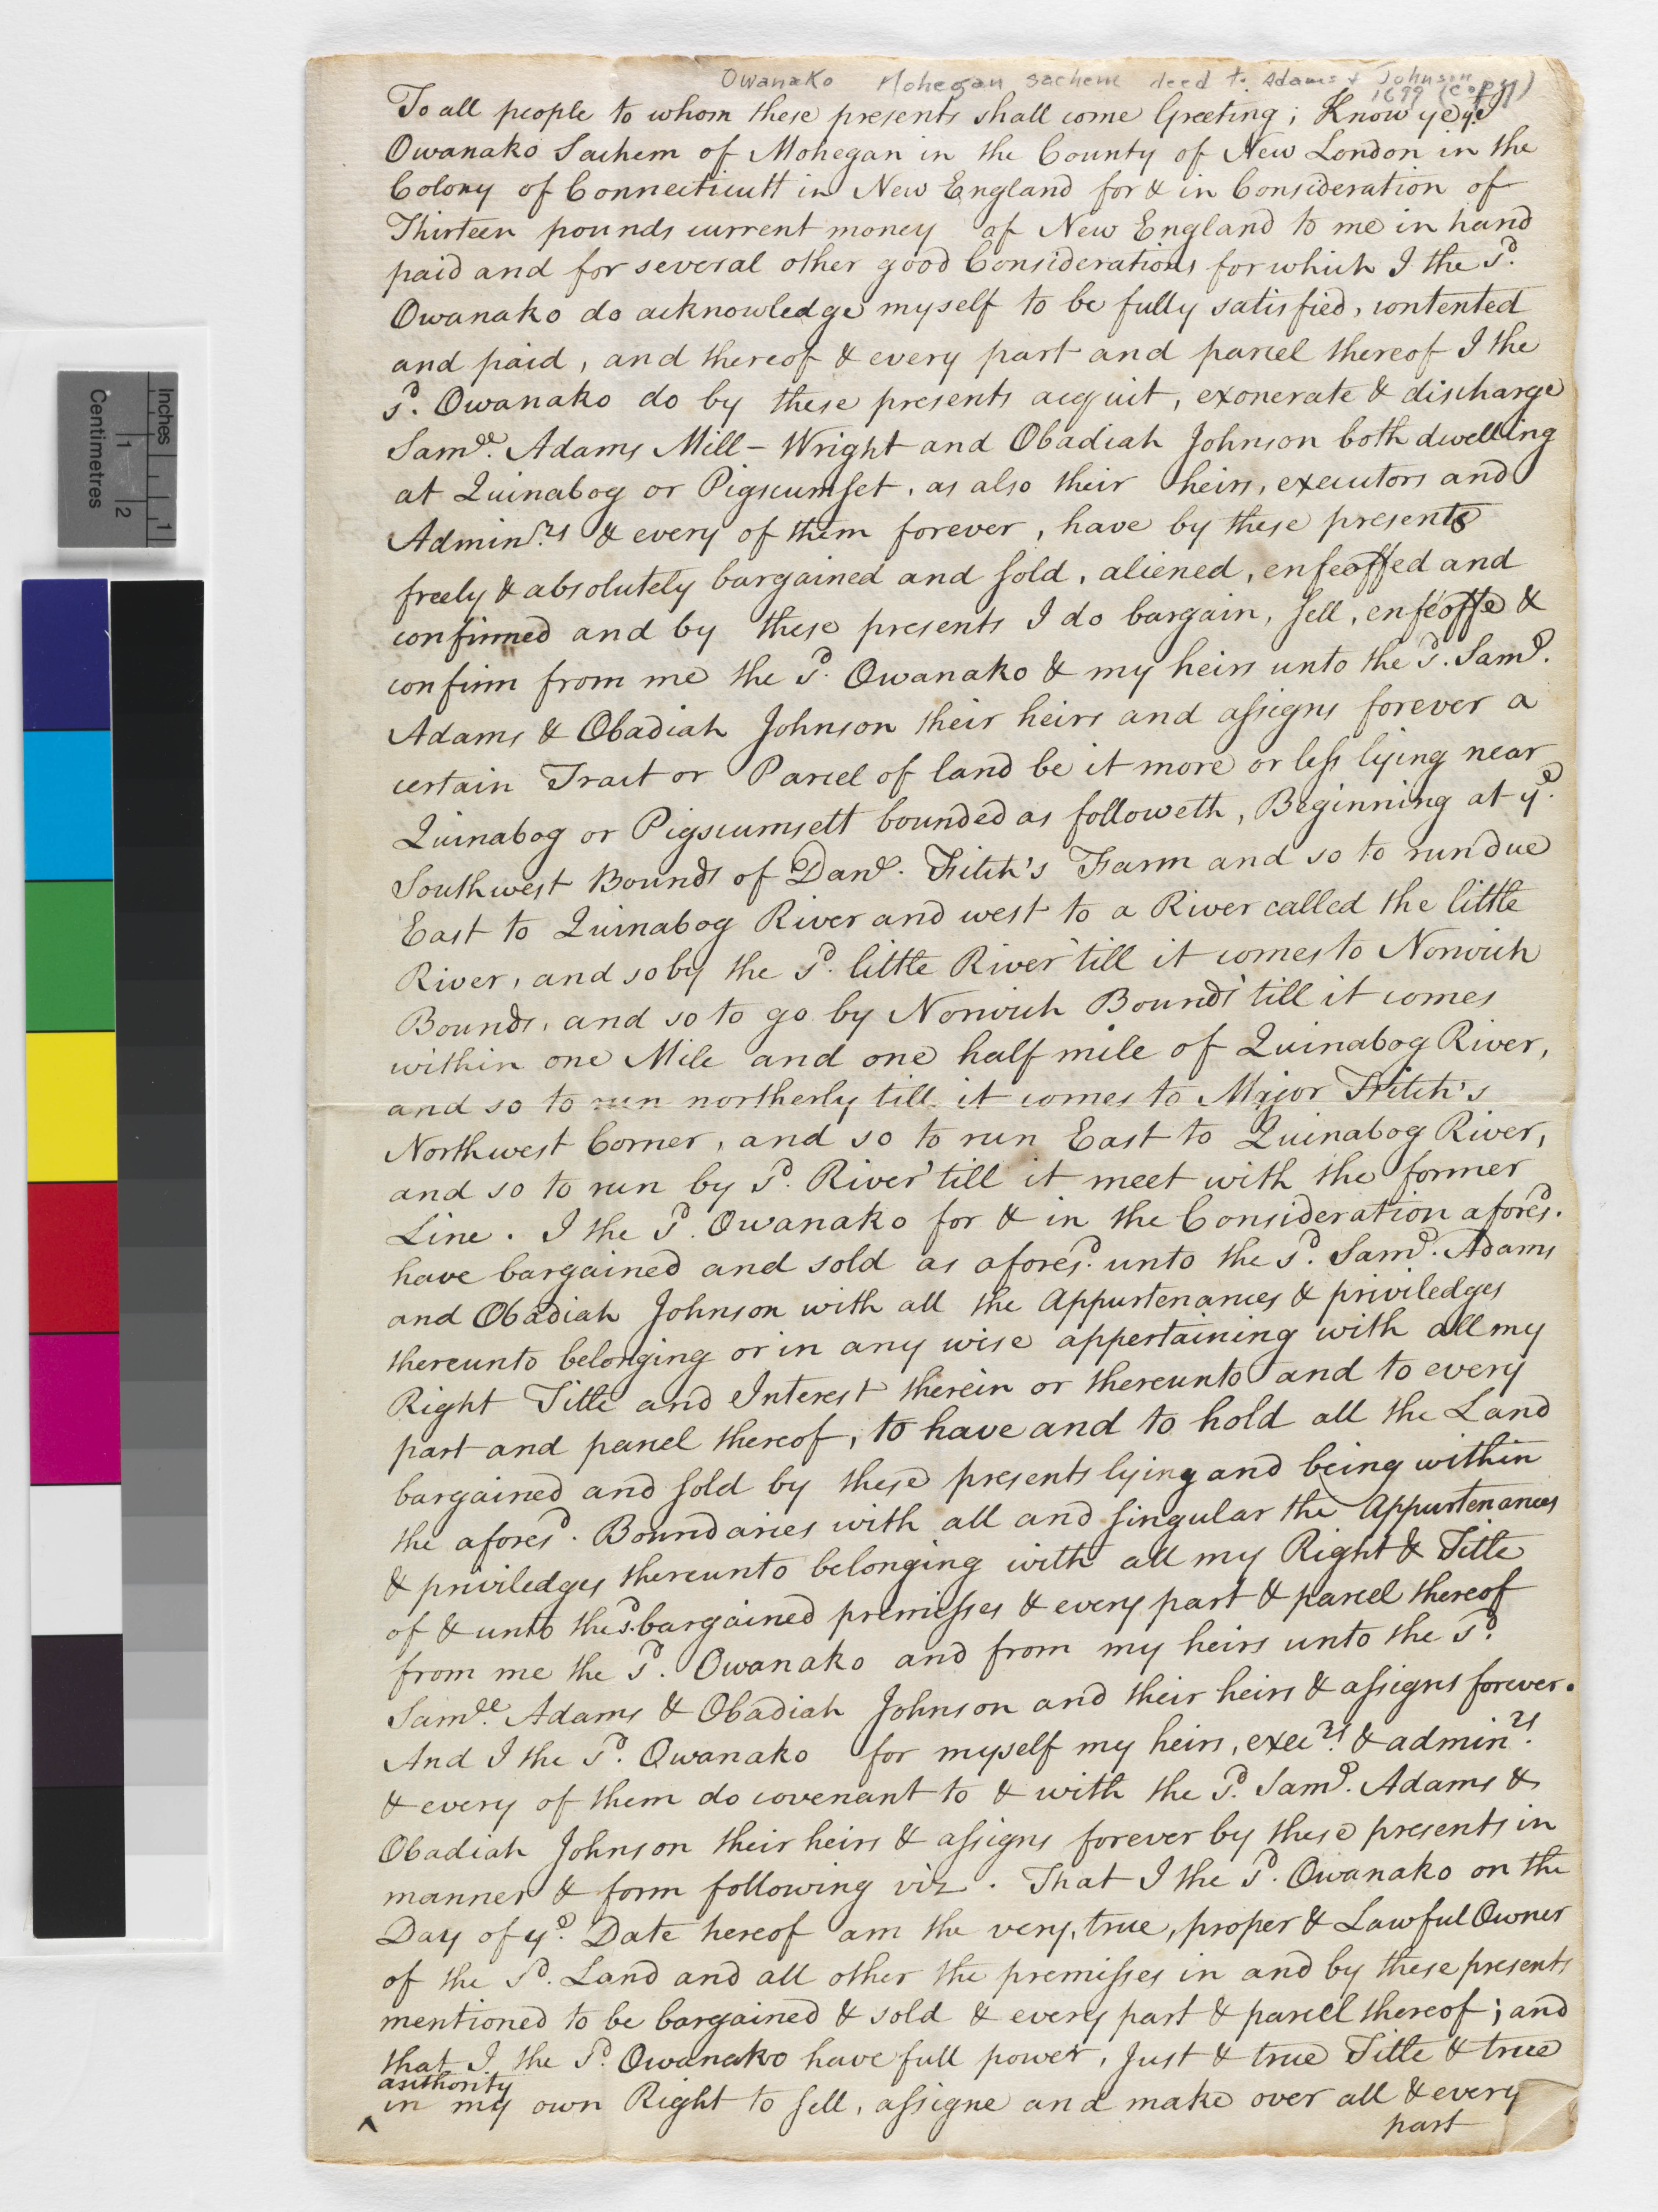 Owanako Mohegan sachem deed to Adams & Johnson
1699 (copy)
To all people to whom these presents shall come Greeting; Know ye yt I
Owanako Sachem of Mohegan in the County of New London in the
Colony of Connecticutt in New England for & in Consideration of
Thirteen pounds current money of New England to me in hand
paid and for several other good Considerations for which I the sd.
Owanako do acknowledge myself to be fully satisfied, contented
and paid, and thereof & every part and parcel thereof I the
sd. Owanako do by these presents acquit, exonerate & discharge
Samll. Adams Mill-Wright and Obadiah Johnson both dwelling
at Quinabog or Pigscumset, as also their heirs, executors and
Adminrs. & every of them forever, have by these presents
freely & absolutely bargained and sold, aliened, enfeoffed and
confirmed and by these presents I do bargain, sell, enfeoffe &
confirm from me the sd. Owanako & my heirs unto the sd. Saml.
Adams & Obadiah Johnson their heirs and assigns forever a
certain Tract or Parcel of land be it more or less lying near
Quinabog or Pigscumsett bounded as followeth, Beginning at ye.
Southwest Bounds of Danl. Fitch's Farm and so to run due
East to Quinabog River and west to a River called the little
River, and so by the sd. little River 'till it comes to Norwich
Bounds, and so to go by Norwich Bounds 'till it comes
within one Mile and one half mile of Quinabog River,
and so to run northerly till it comes to Major Fitch's
Northwest Corner, and so to run East to Quinabog River,
and so to run by sd. River 'till it meet with the former
Line. I the sd. Owanako for & in the Consideration aforesd.
have bargained and sold as aforesd. unto the sd. Saml. Adams
and Obadiah Johnson with all the Appurtenances & priviledges
thereunto belonging or in any wise appertaining with all my
Right Title and Interest therein or thereunto and to every
part and parcel thereof, to have and to hold all the Land
bargained and sold by these presents lying and being within
the aforesd. Boundaries with all and singular the Appurtenances
& priviledges thereunto belonging with all my Right & Title
of & unto the sd. bargained premisses & every part & parcel thereof
from me the sd. Owanako and from my heirs unto the sd.
Samll. Adams & Obadiah Johnson and their heirs & assigns forever.
And I the sd. Owanako for myself my heirs, execrs. & adminrs.
& every of them do covenant to & with the sd. Saml. Adams &
Obadiah Johnson their heirs & assigns forever by these presents in
manner & form following viz. That I the sd. Owanako on the
Day of ye. Date hereof am the very, true, proper & Lawful Owner
of the sd. Land and all other the premisses in and by these presents
mentioned to be bargained & sold & every part & parcell thereof; and
that I the sd. Owanako have full power, Just & true Title & true
authority
^ in my own Right to sell, assigne and make over all & every
part
Inches
1
Centimetres
1
2